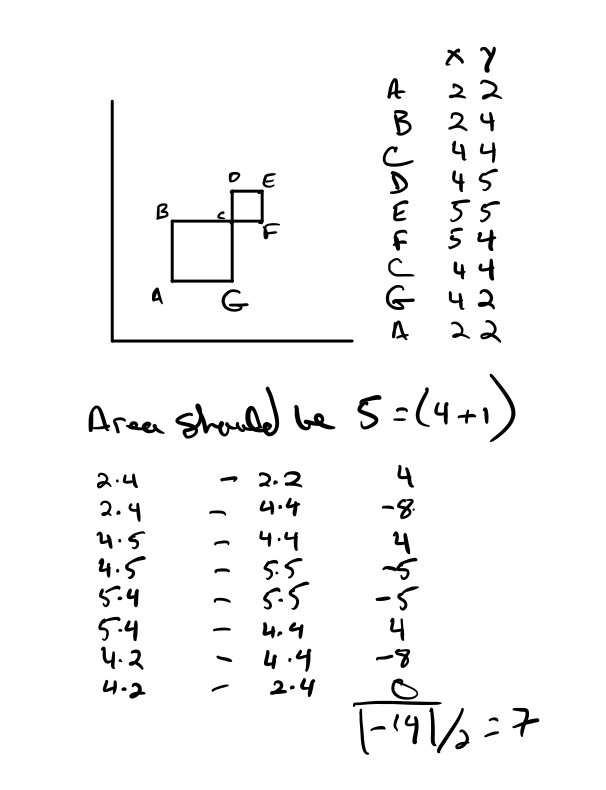 x y
A 2 2
B 2 4
C 4 4
D 4 5
E 5 5
F 5 4
C 4 4
G 4 2
A 2 2
D E
B C F
A G
Area should be 5 = (4+1)
2·4 - 2·2 4
2·4 - 4·4 -8
4·5 - 4·4 4
4·5 - 5·5 -5
5·4 - 5·5 -5
5·4 - 4·4 4
4·2 - 4·4 -8
4·2 - 2·4 0
|-14|/2 = 7